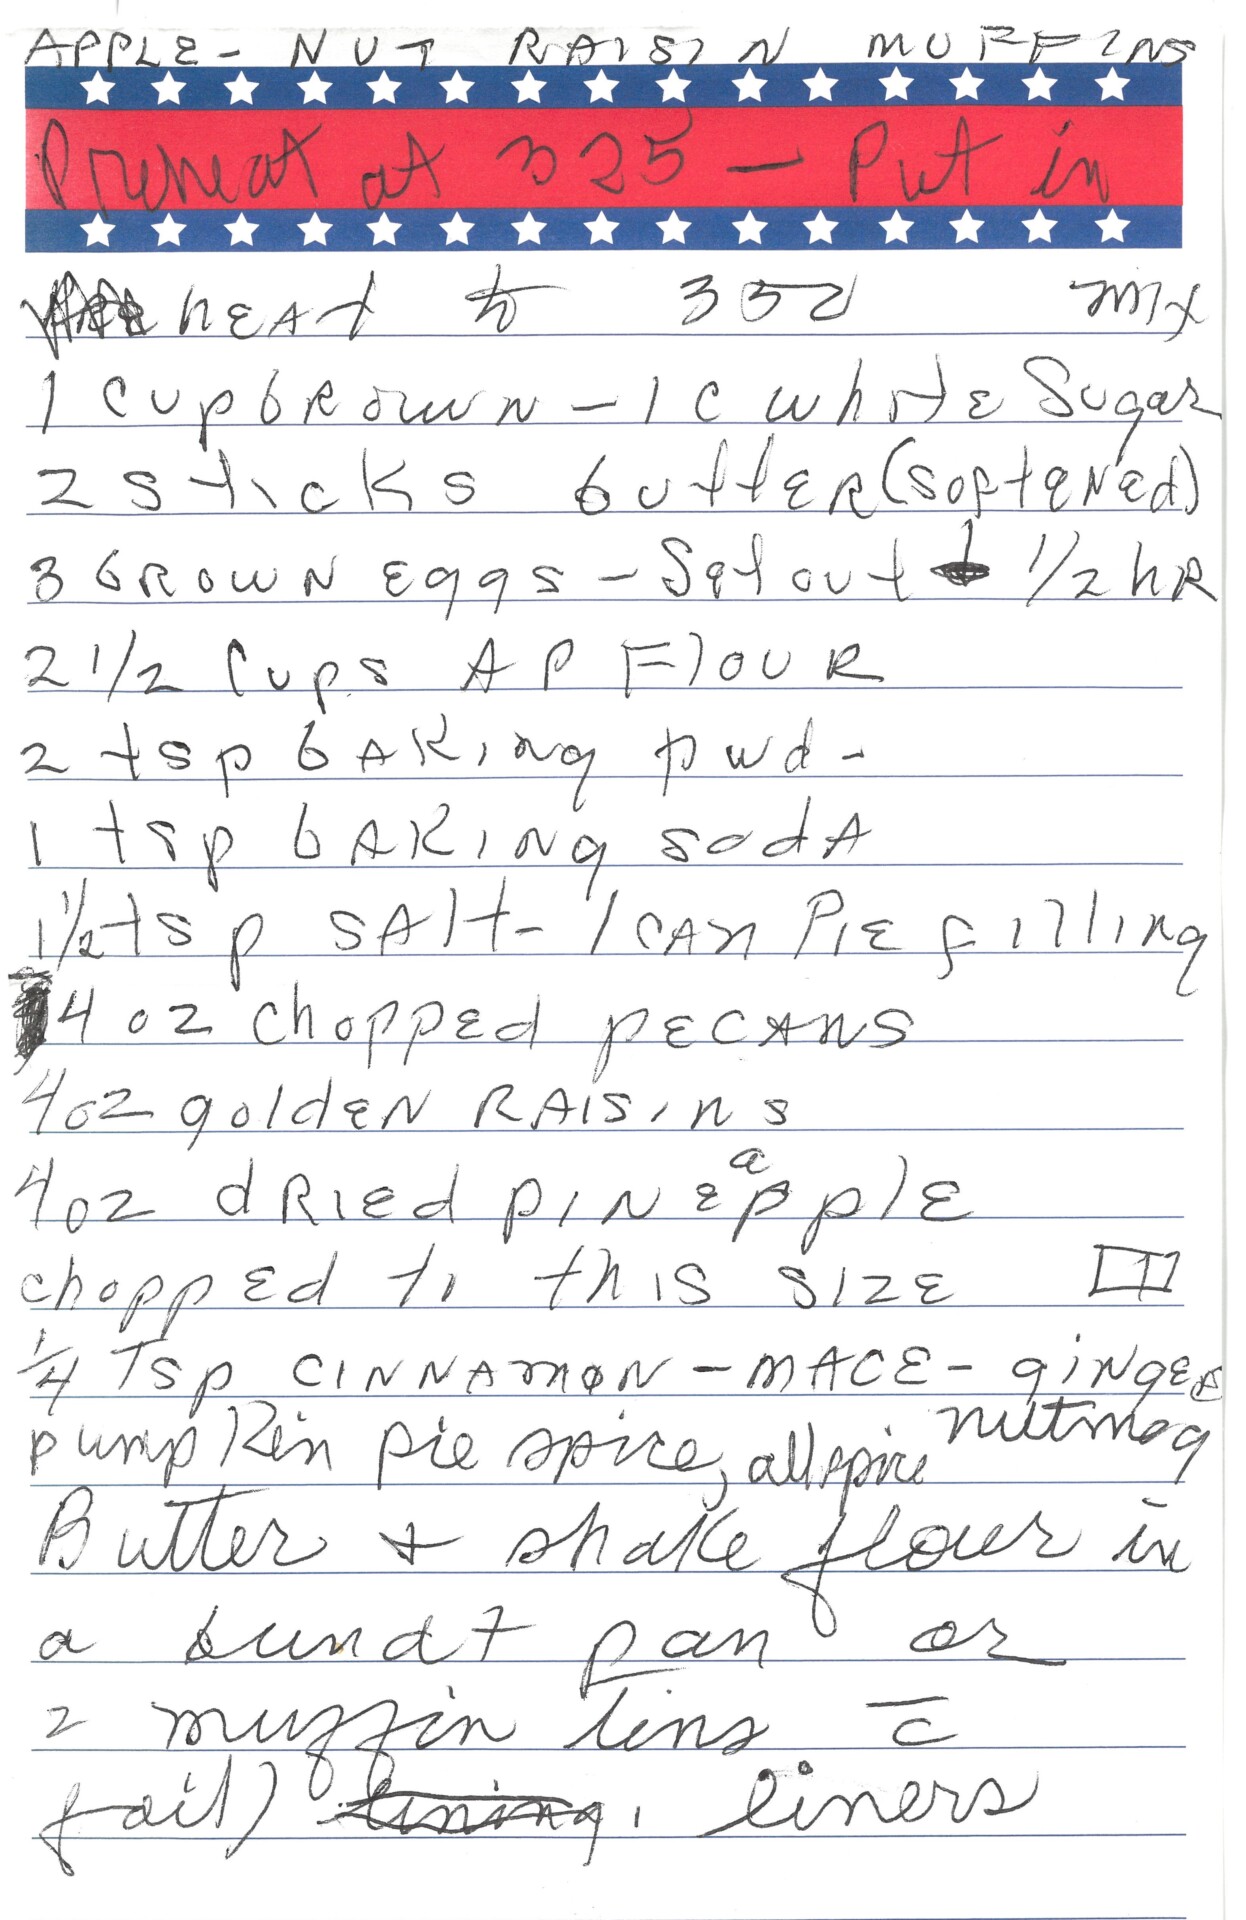 APPLE - NUT RAISIN MUFFINS
Preheat at 325 — Put in
heat to 350 mix
1 cup brown - 1 c white Sugar
2 sticks butter (softened)
3 brown eggs - Set out 1/2 hR
2 1/2 Cups AP Flour
2 tsp baking pwd -
1 tsp baking soda
1 1/2 tsp salt - 1 can Pie filling
4 oz chopped pecans
4 oz golden Raisins
4 oz dried pineapple
chopped to this size
1/4 Tsp cinnamon - mace - ginger
pumpkin pie spice, allspice nutmeg
Butter + shake flour in
a bundt pan or
2 muffin tins c̄
foil) lining, liners